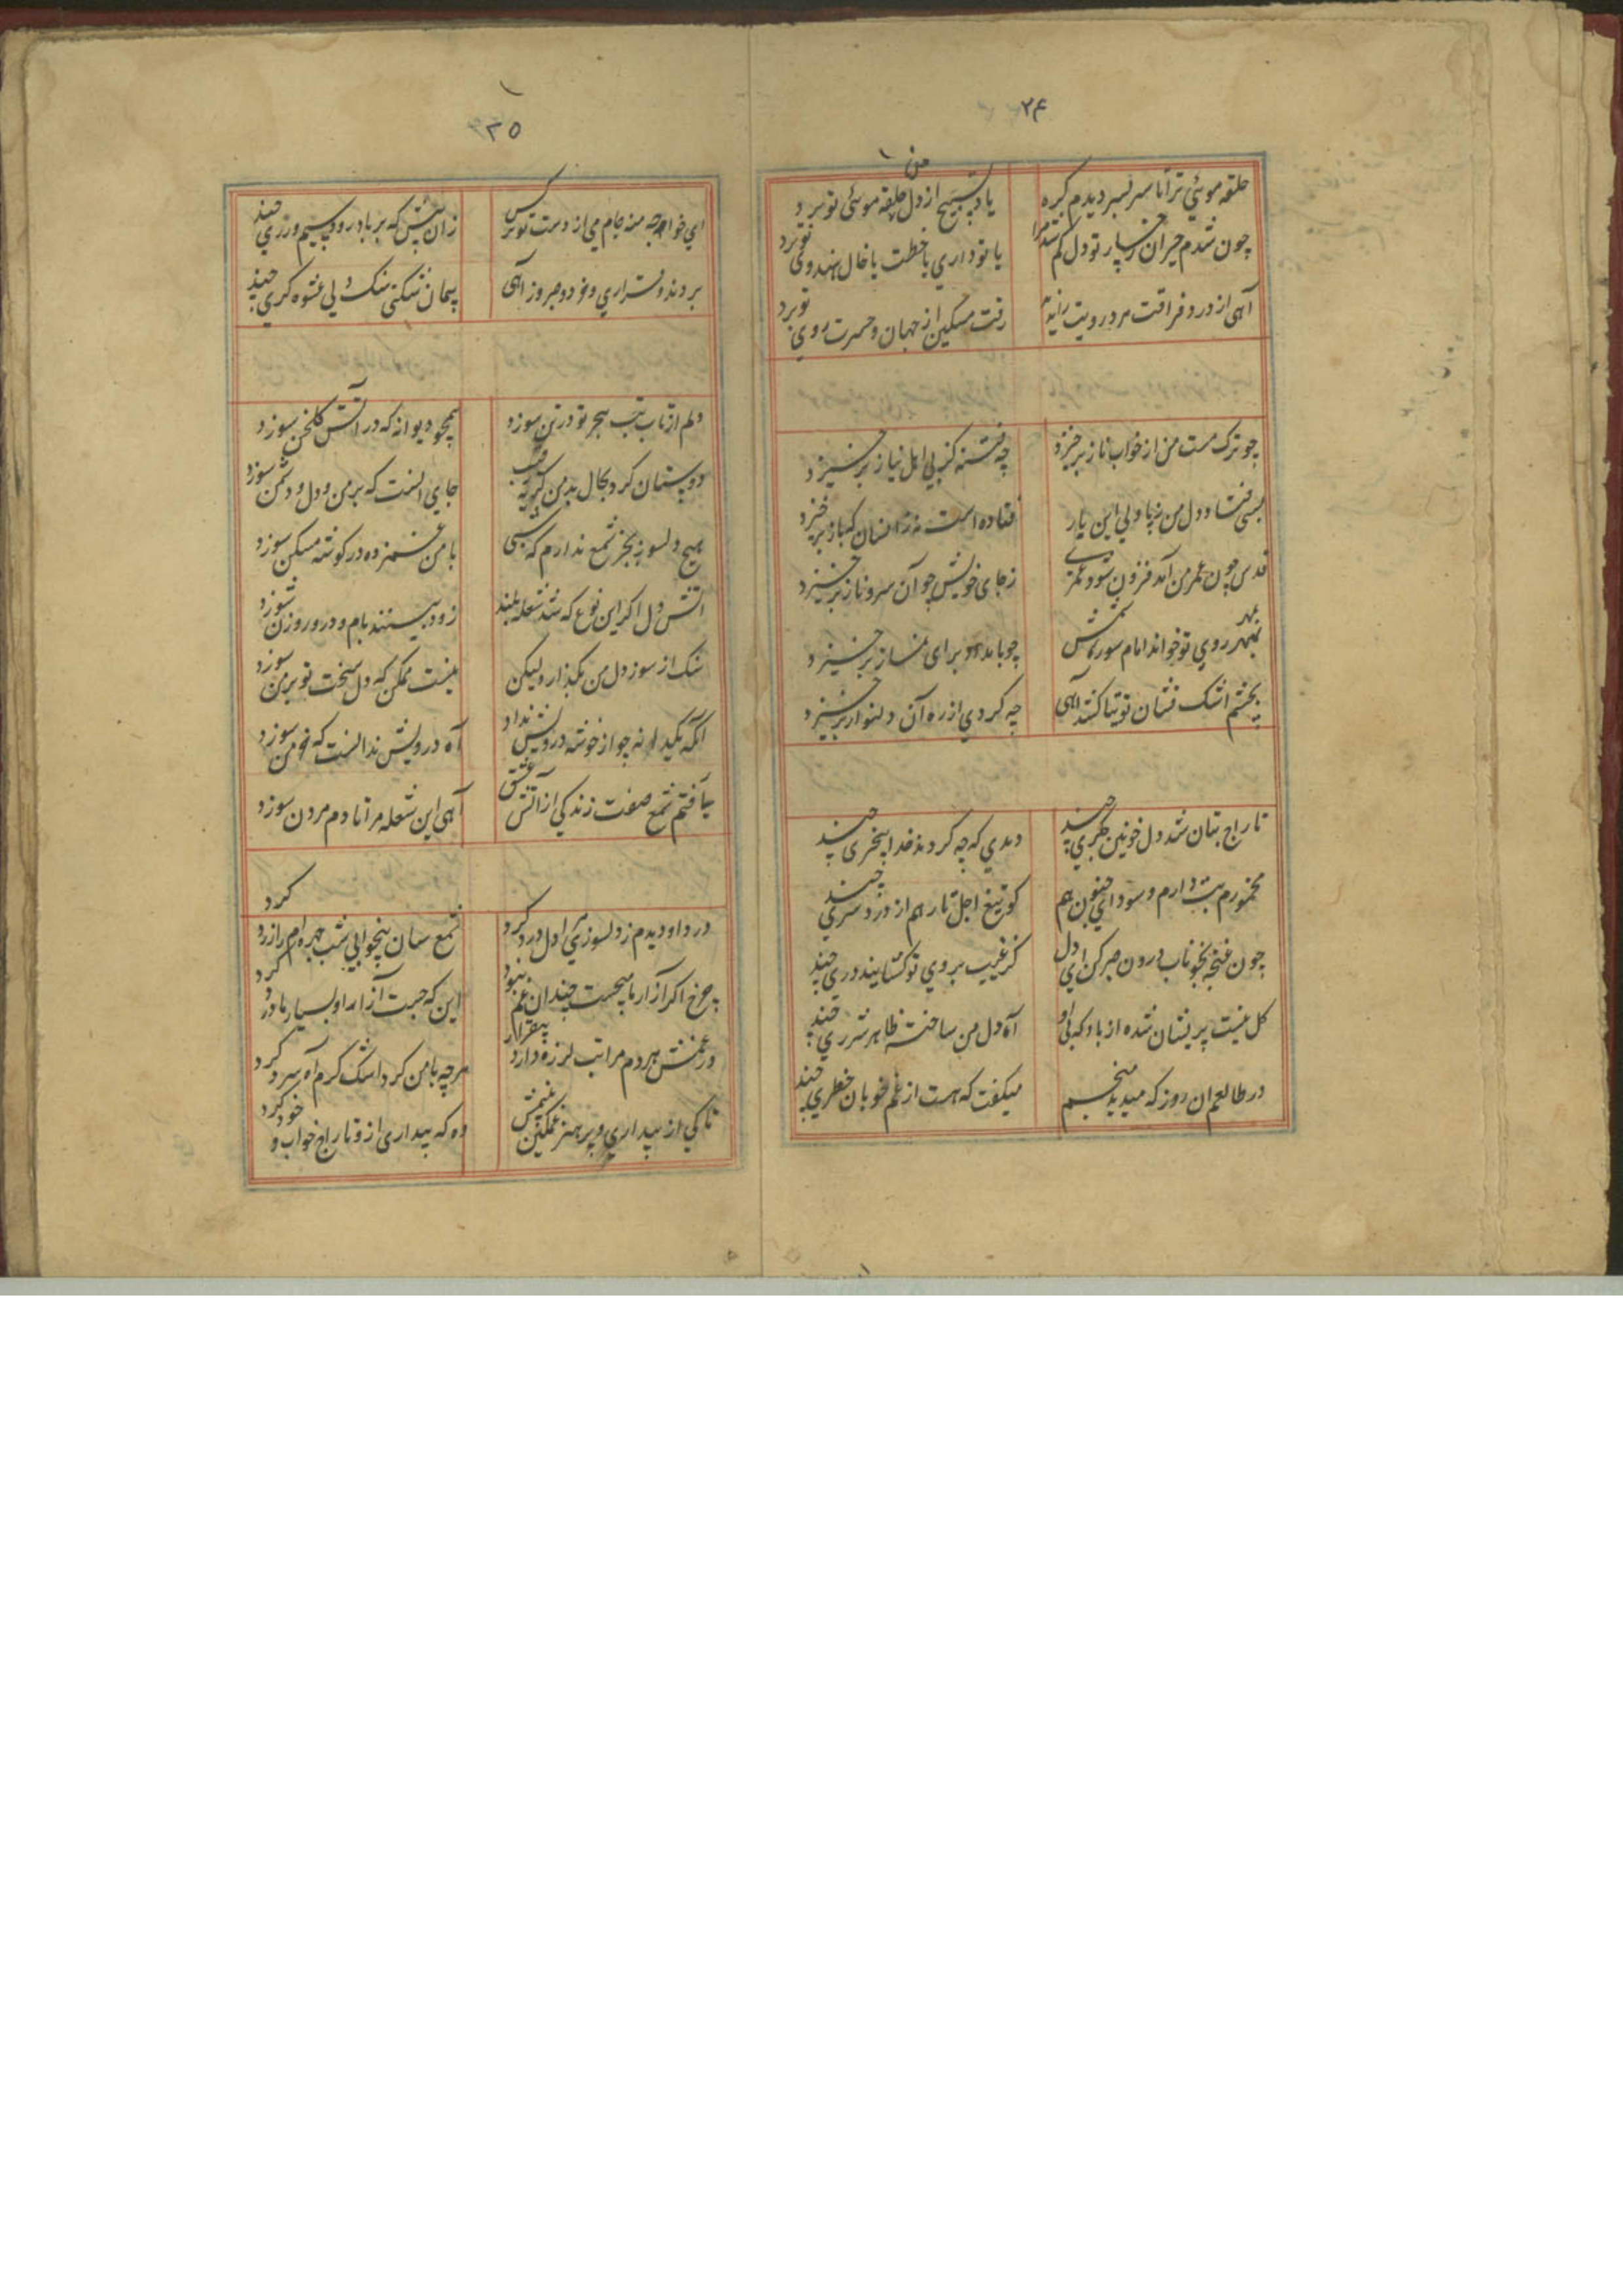 ۲۴
حلقه موئی ترا تا سر بسر دیدم گره
یاد تسبیح از دل من حلقه موئی تو برد
چون شدم حیران رخسار تو دل گم شد مرا
یا تو داری یا خطت یا خال هندوی تو برد
آهی از درد فراقت مرد و رویت را ندید
رفت مسکین از جهان و حسرت روی تو برد
چو ترک مست من از خواب ناز برخیزد
چه فتنه کز پی اهل نیاز برخیزد
بسی فتاد دل من ز پا ولی این بار
فتاده است نه زانسان که باز برخیزد
قدش چون عمر من آمد فزون شود عمری
ز جای خویش چو آن سرو ناز برخیزد
بمهر روی تو خواند امام سوره شمس
چو بامداد برای نماز برخیزد
بچشم اشک فشان توتیا کشد آهی
چه گردی از ره آن دلنواز برخیزد
تاراج بتان شد دل خونین جگری چند
دیدی که چه کردند خدا بیخبری چند
مخمورم و تب دارم و سودای جنون هم
کو تیغ اجل تا رهم از درد سری چند
چون غنچه بخوناب درون صبر کن ای دل
کز غیب بروی تو گشایند دری چند
گل نیست پریشان شده از باد که بی او
آه دل من ساخته ظاهر شرری چند
در طالعم ان روز که میدید منجم
میگفت که هست از غم خوبان خطری چند
۲۵
ای خواجه منه جام می از دست تو نرگس
زان پیش که بر باد رود سیم و زری چند
بردند قراری و خود و صبر و ز آهی
پیمان شکنی سنگ دلی عشوه گری چند
دلم از تاب تب هجر تو در تن سوزد
همچو دیوانه که در آتش گلخن سوزد
دوستان گرد بحال بد من گریه رقیب
جای انست که بر من دل دشمن سوزد
هیچ دلسوز بجز شمع ندارم که شبی
با من غمزده در گوشه مسکن سوزد
اتش دل اگر این نوع که شد شعله بلند
زود بینند بام و در و روزن سوزد
سنگ از سوز دل من بگدازد لیکن
نیست ممکن که دل سخت تو بر من سوزد
آنکه یکدانه جو از خوشه درویش نداد
آه درویش ندانست که خرمن سوزد
یافتم شمع صفت زندگی از آتش عشق
آهی این شعله مرا تا دم مردن سوزد
درد او دیدم ز دلسوزی دل درد کرد
شمع سان بیخوابی شب چهره ام را زرد کرد
چرخ اگر آزار ما میجست چندان غم نبود
این که جست آزار او بسیار ما را درد کرد
در غمش هر دم مرا تب لرزه دارد بیقرار
هرچه با من کرد اشک گرم آه سرد کرد
تا کی از بیداری و پرهیز غمگین غمش
وه که بیداری از و تاراج خواب و خورد کرد